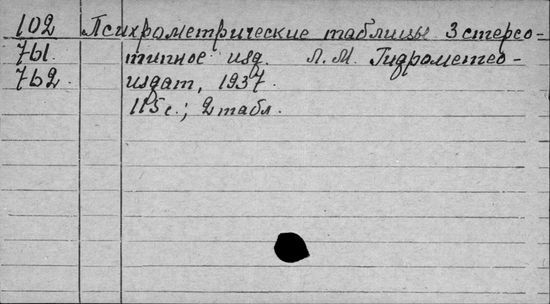 102 Психрометрические таблицы 3 стерео-
761 типное изд. Л.М. Гидрометео-
762 издат, 1937.
115 с.; 2 табл.